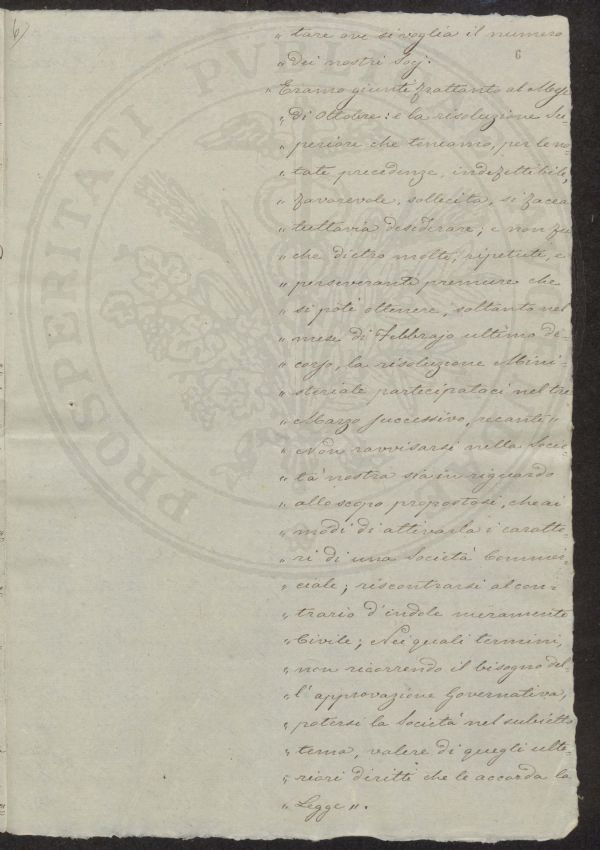 6)
„ tare ove si voglia il numero
6
„ dei nostri Socj.
„ Eramo giunte frattanto al Mese
„ di Ottobre: e la risoluzione Su-
„ periore che teneamo, per le no-
„ tate precedenze, indefettibile,
„ favorevole, sollecita, si facea
„ tuttavia desiderare; e non fu
„ che dietro molte, ripetute, e
„ perseveranti premure che
„ si potè ottenere, soltanto nel
„ mese di Febbrajo ultimo de-
„ corso, la risoluzione Mini-
„ steriale partecipataci nel tre
„ Marzo successivo, recante „
„ Non ravvisarsi nella Socie-
„ tà nostra sia in riguardo
„ allo scopo propostosi, che ai
„ modi di attivarla i caratte-
„ ri di una Società Commer-
„ ciale; riscontrarsi al con-
„ trario d'indole meramente
„ Civile; Nei quali termini,
„ non ricorrendo il bisogno del-
„ l'approvazione Governativa,
„ potersi la Società nel subietto
„ tema, valere di quegli ulte-
„ riori diritti che le accorda la
„ Legge „.
PROSPERITATI PUBLI